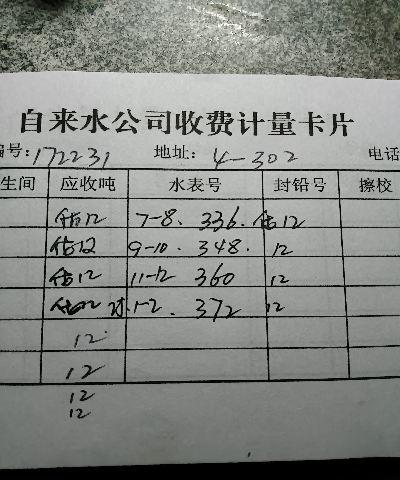 自来水公司收费计量卡片
编号:172231 地址: 4-302 电话
生间 应收吨 水表号 封铅号 擦校
估12 7-8. 336. 估12
估12 9-10. 348. 12
估12 11-12 360 12
估12 1-2. 372 12
12
12
12
12